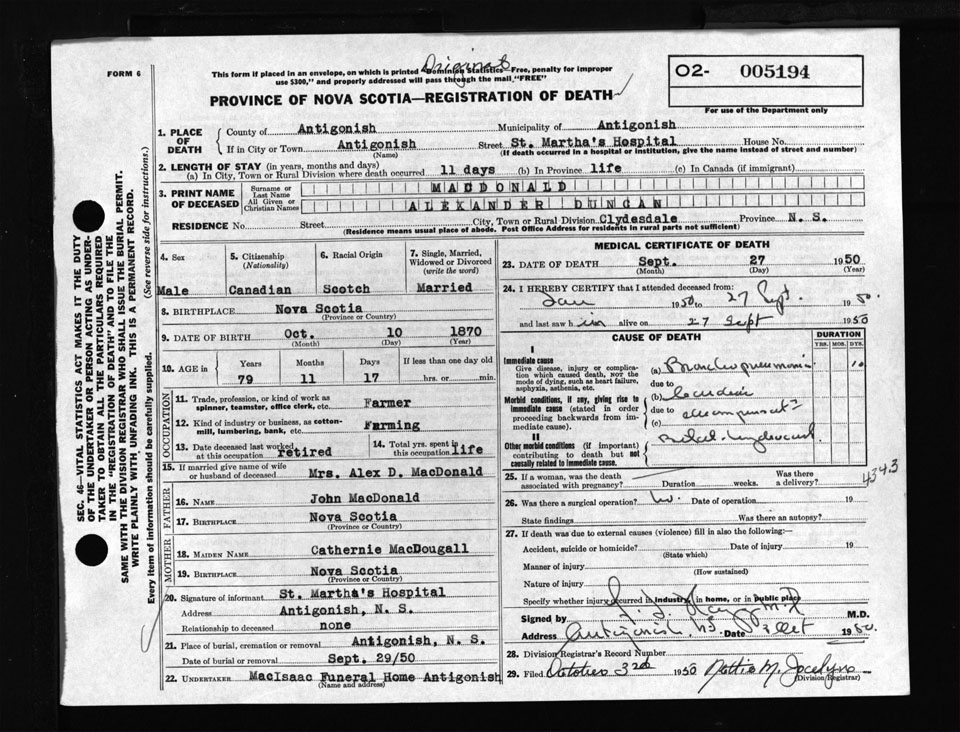 FORM 6
Original
This form if placed in an envelope, on which is printed "Dominion Statistics—Free, penalty for improper
use $300," and properly addressed will pass through the mail, "FREE"
PROVINCE OF NOVA SCOTIA—REGISTRATION OF DEATH
O2- 005194
For use of the Department only
SEC. 46—VITAL STATISTICS ACT MAKES IT THE DUTY
OF THE UNDERTAKER OR PERSON ACTING AS UNDER-
TAKER TO OBTAIN ALL THE PARTICULARS REQUIRED
IN THE "REGISTRATION OF DEATH" AND TO FILE THE
SAME WITH THE DIVISION REGISTRAR WHO SHALL ISSUE THE BURIAL PERMIT.
WRITE PLAINLY WITH UNFADING INK. THIS IS A PERMANENT RECORD.
Every item of information should be carefully supplied. (See reverse side for instructions.)
1. PLACE OF DEATH
County of Antigonish Municipality of Antigonish
If in City or Town Antigonish Street St. Martha's Hospital House No.
(Name) (If death occurred in a hospital or institution, give the name instead of street and number)
2. LENGTH OF STAY (in years, months and days)
(a) In City, Town or Rural Division where death occurred 11 days (b) In Province life (c) In Canada (if immigrant)
3. PRINT NAME OF DECEASED
Surname or Last Name MACDONALD
All Given or Christian Names ALEXANDER DUNCAN
RESIDENCE No. Street City, Town or Rural Division Clydesdale Province N. S.
(Residence means usual place of abode. Post Office Address for residents in rural parts not sufficient)
4. Sex 5. Citizenship (Nationality) 6. Racial Origin 7. Single, Married, Widowed or Divorced (write the word)
Male Canadian Scotch Married
8. BIRTHPLACE Nova Scotia
(Province or Country)
9. DATE OF BIRTH Oct. 10 1870
(Month) (Day) (Year)
10. AGE in Years Months Days If less than one day old
79 11 17 hrs. or min.
OCCUPATION
11. Trade, profession, or kind of work as
spinner, teamster, office clerk, etc. Farmer
12. Kind of industry or business, as cotton-
mill, lumbering, bank, etc. Farming
13. Date deceased last worked at this occupation retired 14. Total yrs. spent in this occupation life
15. If married give name of wife
or husband of deceased Mrs. Alex D. MacDonald
FATHER
16. NAME John MacDonald
17. BIRTHPLACE Nova Scotia
(Province or Country)
MOTHER
18. MAIDEN NAME Cathernie MacDougall
19. BIRTHPLACE Nova Scotia
(Province or Country)
20. Signature of informant St. Martha's Hospital
Address Antigonish, N. S.
Relationship to deceased none
21. Place of burial, cremation or removal Antigonish, N. S.
Date of burial or removal Sept. 29/50
22. UNDERTAKER MacIsaac Funeral Home Antigonish
(Name and address)
MEDICAL CERTIFICATE OF DEATH
23. DATE OF DEATH Sept. 27 1950
(Month) (Day) (Year)
24. I HEREBY CERTIFY that I attended deceased from:
Jan 1950 to 27 Sept. 1950.
and last saw him alive on 27 Sept 1950
CAUSE OF DEATH DURATION
YRS. MOS. DYS.
I
Immediate cause
Give disease, injury or complica-
tion which caused death, NOT the
mode of dying, such as heart failure,
asphyxia, asthenia, etc.
(a) Bronchopneumonia 10
due to
Morbid conditions, if any, giving rise to
immediate cause (stated in order
proceeding backwards from im-
mediate cause).
(b) Cardiac
due to
(c)
II
Other morbid conditions (if important)
contributing to death but not
causally related to immediate cause.
4343
25. If a woman, was the death
associated with pregnancy? Duration weeks. Was there a delivery?
26. Was there a surgical operation? No. Date of operation 19
State findings Was there an autopsy?
27. If death was due to external causes (violence) fill in also the following:—
Accident, suicide or homicide? Date of injury 19
(State which)
Manner of injury
(How sustained)
Nature of injury
Specify whether injury occurred in industry, in home, or in public place
Signed by M.D.
Address Antigonish NS Date 1950.
28. Division Registrar's Record Number
29. Filed October 3rd 1950 Nettie M. Jocelyn
(Division Registrar)